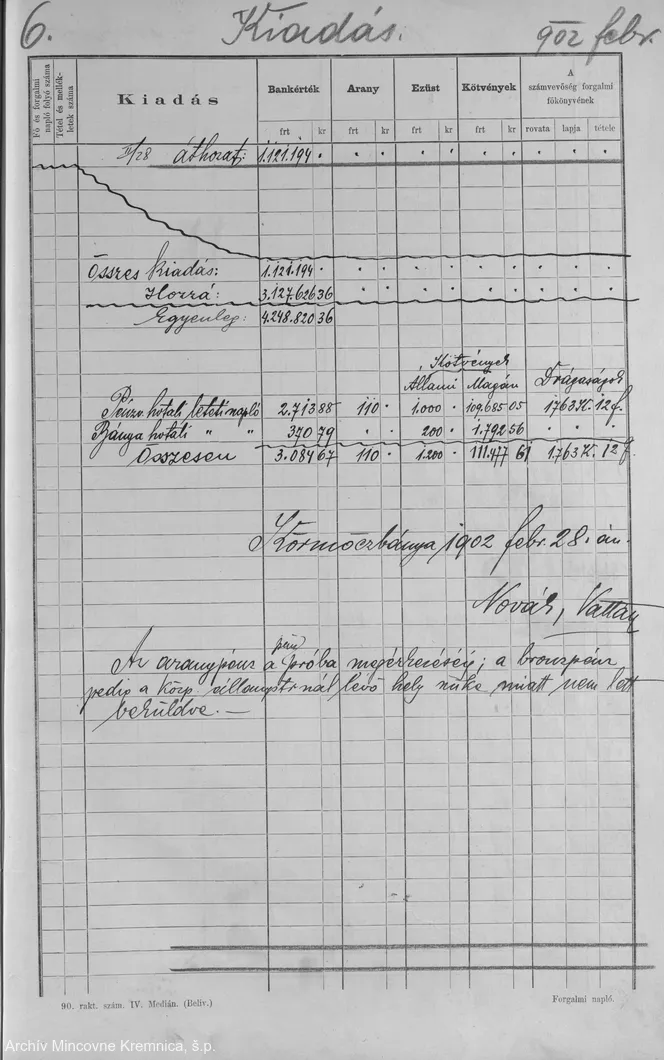 6. Kiadás. 902 febr.
Fő és forgalmi napló folyó száma
Tétel és mellékletek száma
Kiadás
Bankérték Arany Ezüst Kötvények
A számvevőség forgalmi főkönyvének
frt kr frt kr frt kr frt kr rovata lapja tétele
II/28 áthozat: 1.121.194 .
Összes kiadás: 1.121.194 .
Hozzá: 3.127.626 36
Egyenleg: 4.248.820 36
Kötvények
Állami Magán Drágaságok
Pénzv. hotali letéti napló 2.713 88 110 . 1.000 . 109.685 05 1763 K. 12 f.
Bánya hotali " " 370 79 . . 200 . 1.792 56 . .
Összesen 3.084 67 110 . 1.200 . 111.477 61 1.763 K. 12 f
Körmöczbánya 1902 febr. 28.-án.
Novák,
Az aranypénz a pénz próba megérkezéséig; a bronzpénz
pedig a közp. állampénztrnál lévő hely szűke miatt nem lett
beküldve. —
90. rakt. szám. IV. Medián. (Belív.) Forgalmi napló.
Archív Mincovne Kremnica, š.p.